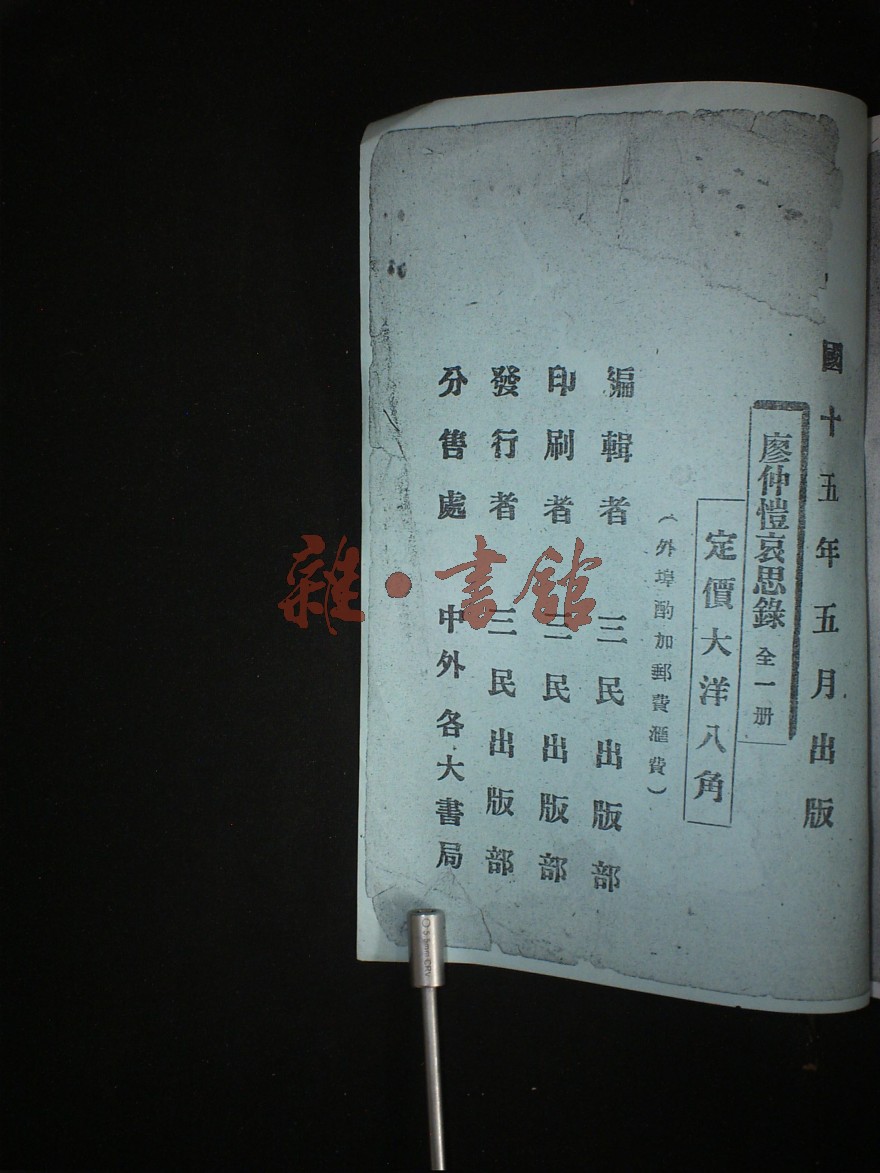 國十五年五月出版
廖仲愷哀思錄 全一册
定價大洋八角
（外埠酌加郵費滙費）
編輯者 三民出版部
印刷者 三民出版部
發行者 三民出版部
分售處 中外各大書局
雜·書館